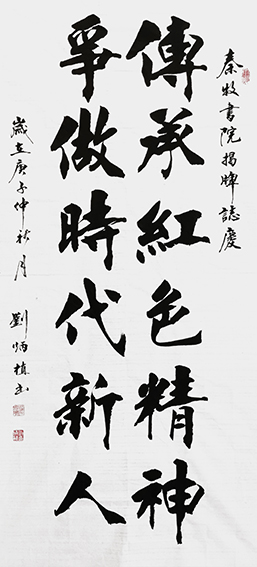 秦牧書院揭牌誌慶
傳承紅色精神
爭做時代新人
歲在庚子仲秋月
劉炳楨書